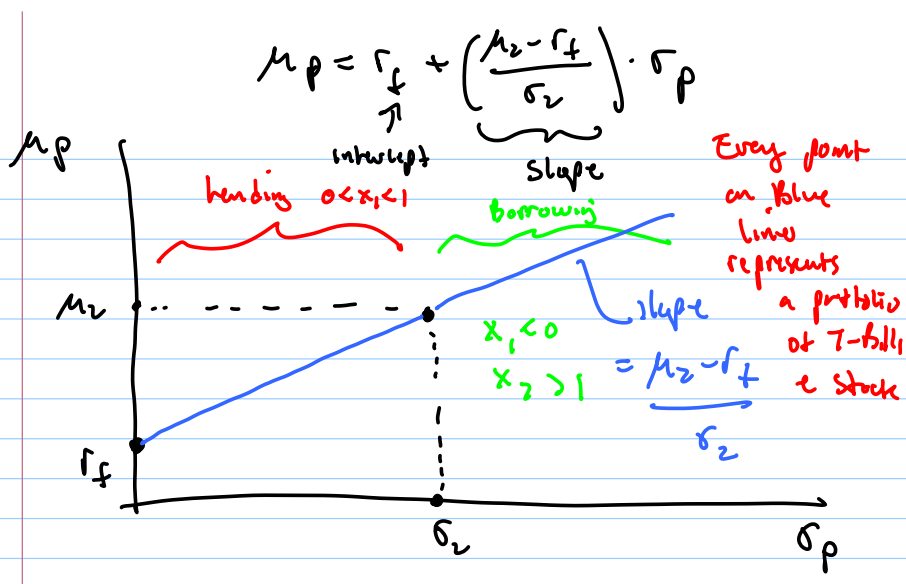 μp = rf + (μ2 - rf / σ2) · σp
↑
intercept
slope
μp
lending 0<x1<1
Borrowing
Every point
on Blue
line
represents
a portfolio
of T-Bills
& stock
μ2
x1 < 0
x2 > 1
slope
= μ2 - rf / σ2
rf
σ2
σp